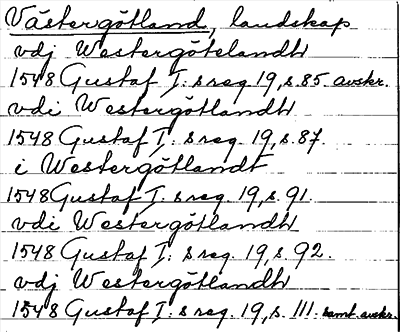 Västergötland, landskap
vdj Westergötelandh
1548 Gustaf I:s reg. 19, s. 85 avskr.
vdi Westergötlandh
1548 Gustaf I:s reg. 19, s. 87.
i Westergötlandt
1548 Gustaf I:s reg. 19, s. 91.
vdi Westergötlandh
1548 Gustaf I:s reg. 19, s. 92.
vdj Westergötlandh
1548 Gustaf I:s reg. 19, s. 111. samt. avskr.